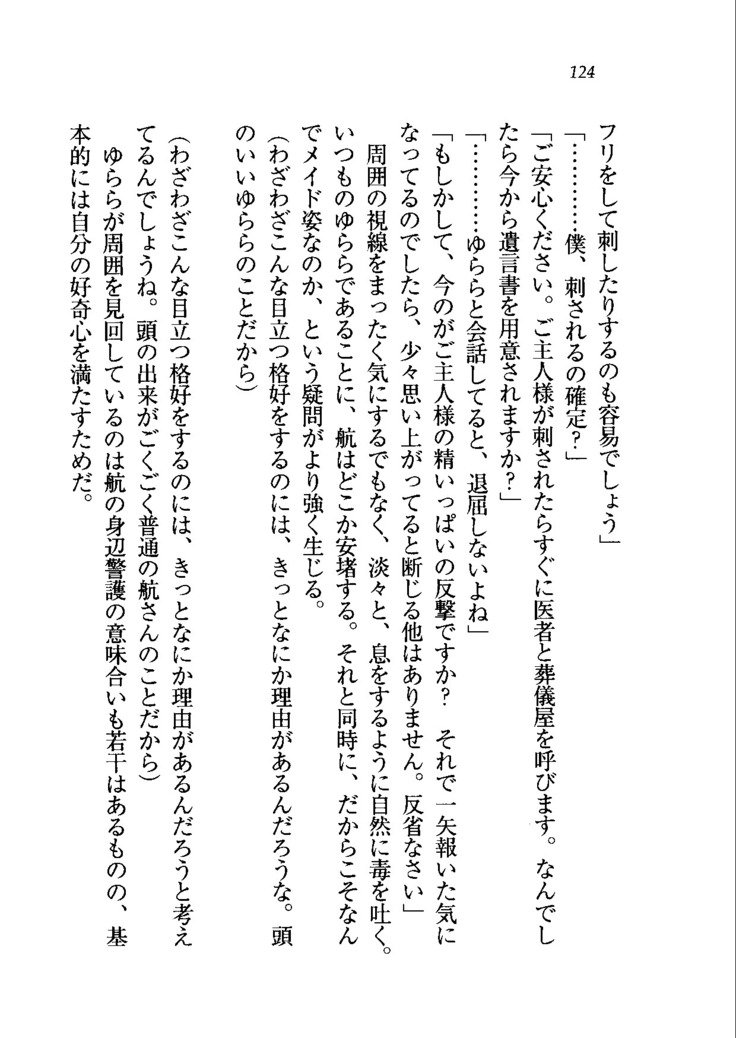 124
フリをして刺したりするのも容易でしょう」
「…………僕、刺されるの確定？」
「ご安心ください。ご主人様が刺されたらすぐに医者と葬儀屋を呼びます。なんでし
たら今から遺言書を用意されますか？」
「…………ゆららと会話してると、退屈しないよね」
「もしかして、今のがご主人様の精いっぱいの反撃ですか？　それで一矢報いた気に
なってるのでしたら、少々思い上がってると断じる他はありません。反省なさい」
　周囲の視線をまったく気にするでもなく、淡々と、息をするように自然に毒を吐く。
いつものゆららであることに、航はどこか安堵する。それと同時に、だからこそなん
でメイド姿なのか、という疑問がより強く生じる。
（わざわざこんな目立つ格好をするのには、きっとなにか理由があるんだろうな。頭
のいいゆららのことだから）
（わざわざこんな目立つ格好をするのには、きっとなにか理由があるんだろうと考え
てるんでしょうね。頭の出来がごくごく普通の航さんのことだから）
　ゆららが周囲を見回しているのは航の身辺警護の意味合いも若干はあるものの、基
本的には自分の好奇心を満たすためだ。